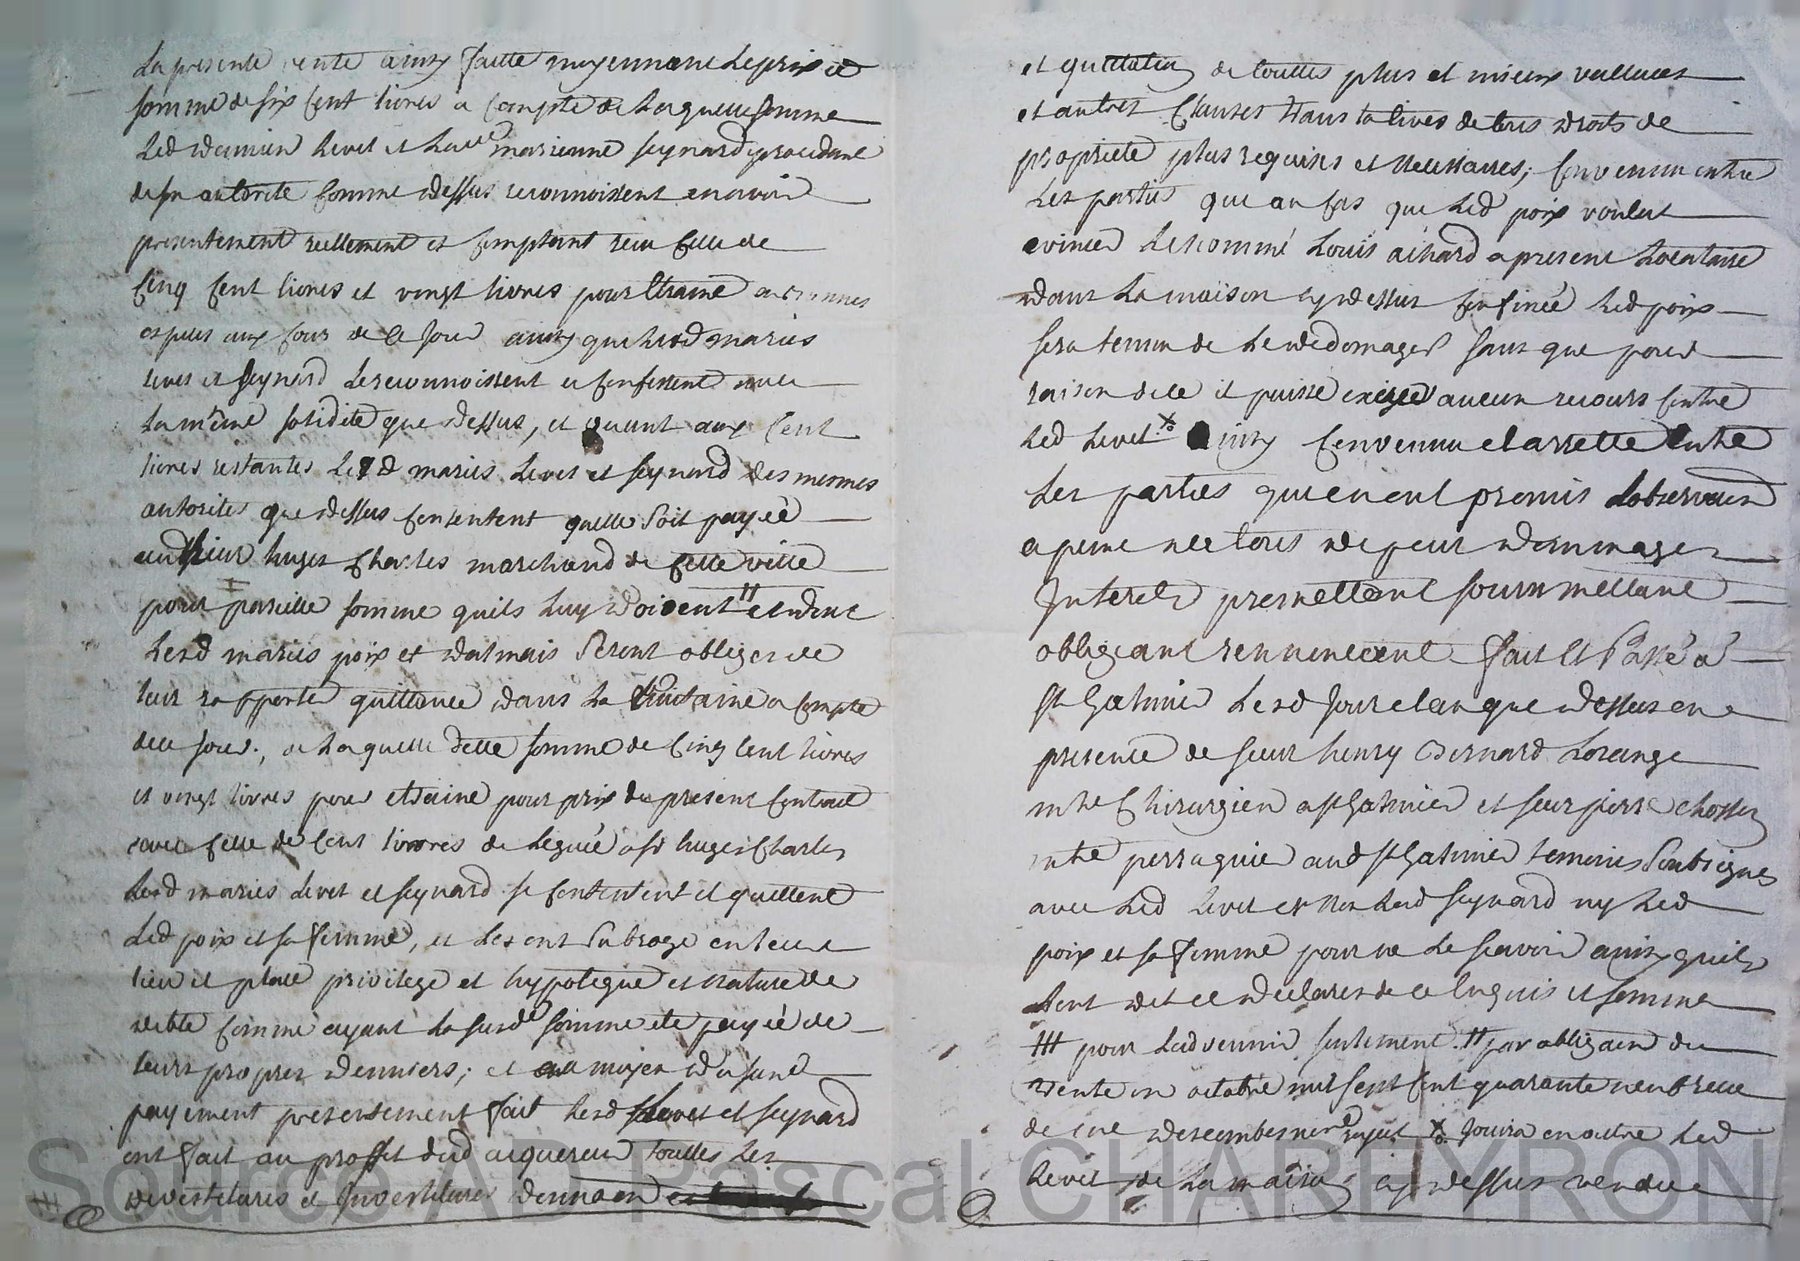 La presente vente ainsy faitte moyennant le prix et
somme de six cent livres a compte de laquelle somme
Led damien Levet et lade marienne seynard procedant
de son autorité comme dessus reconnoissent en avoir
presentement reellement et comptant receu celle de
cinq cent livres et vingt livres pour Etraine
especes aux cour de ce jour ainsy que lesd mariés
Levet et seynard le reconnoissent et confessent avec
La même solidité que dessus, et quant aux cent
livres restantes Lesd mariés Levet et seynard des mesmes
autorites que dessus consentent quelle soit payée
aud sieur huges Charles marchand de cette ville
pour pareille somme quils luy doivent # et dont
Lesd mariés poix et dalmais seront obliges de
leur rapporter quittance dans la huitaine a compter
de ce jour; de laquelle ditte somme de cinq cent livres
et vingt livres pour etraine pour prix du present contract
avec celle de cent livres deleguée a sr huges Charles
Lesd mariés Levet et seynard se contentent et quittent
Led poix et sa femme, et les ont subrogé en leur
lieu et place privilege et hypoteque et nature de
debte comme ayant la susde somme eté payée de
leurs propres denniers; et au moyen du susd
payement presentement fait lesd Levet et seynard
ont fait au proffit dud acquereur touttes les
devestitures et Investitures donnaon
et quittation de touttes plus et mieux vallues
et autres Clauses translatives de tous droits de
proprieté plus requises et necessaires; convenu entre
les parties que au cas que led poix voulut
evincer le nommé Louis achard a present locataire
dans la maison cy dessus confinée led poix
sera tenu de le dedomager sans que pour
raison de ce il puisse exiger aucun recours contre
led Levet X ainsy convenu et arretté entre
les parties qui en ont promis l'observaon
a peine de tous depens dommages
Interets promettant soummettant
obligeant rennoncant fait et Passé a
St Galmier lesd jour et an que dessus en
presence de sieur henry Bernard Lorange
mtre Chirurgien a St Galmier et sieur pierre chosson
mtre perruquier aud St Galmier temoins soubsignes
avec led Levet et non lad seynard ny led
poix et sa femme pour ne le scavoir ainsy quils
l'ont dit et declarer de ce enquis et sommé
# pour led seynard seulement. # par obligaon du
trente un octobre mil sept cent quarante neuf receu
de me descombes nere royal X Jouira en outre led
Levet de la maison cy dessus vendue
Source AD Pascal CHAREYRON